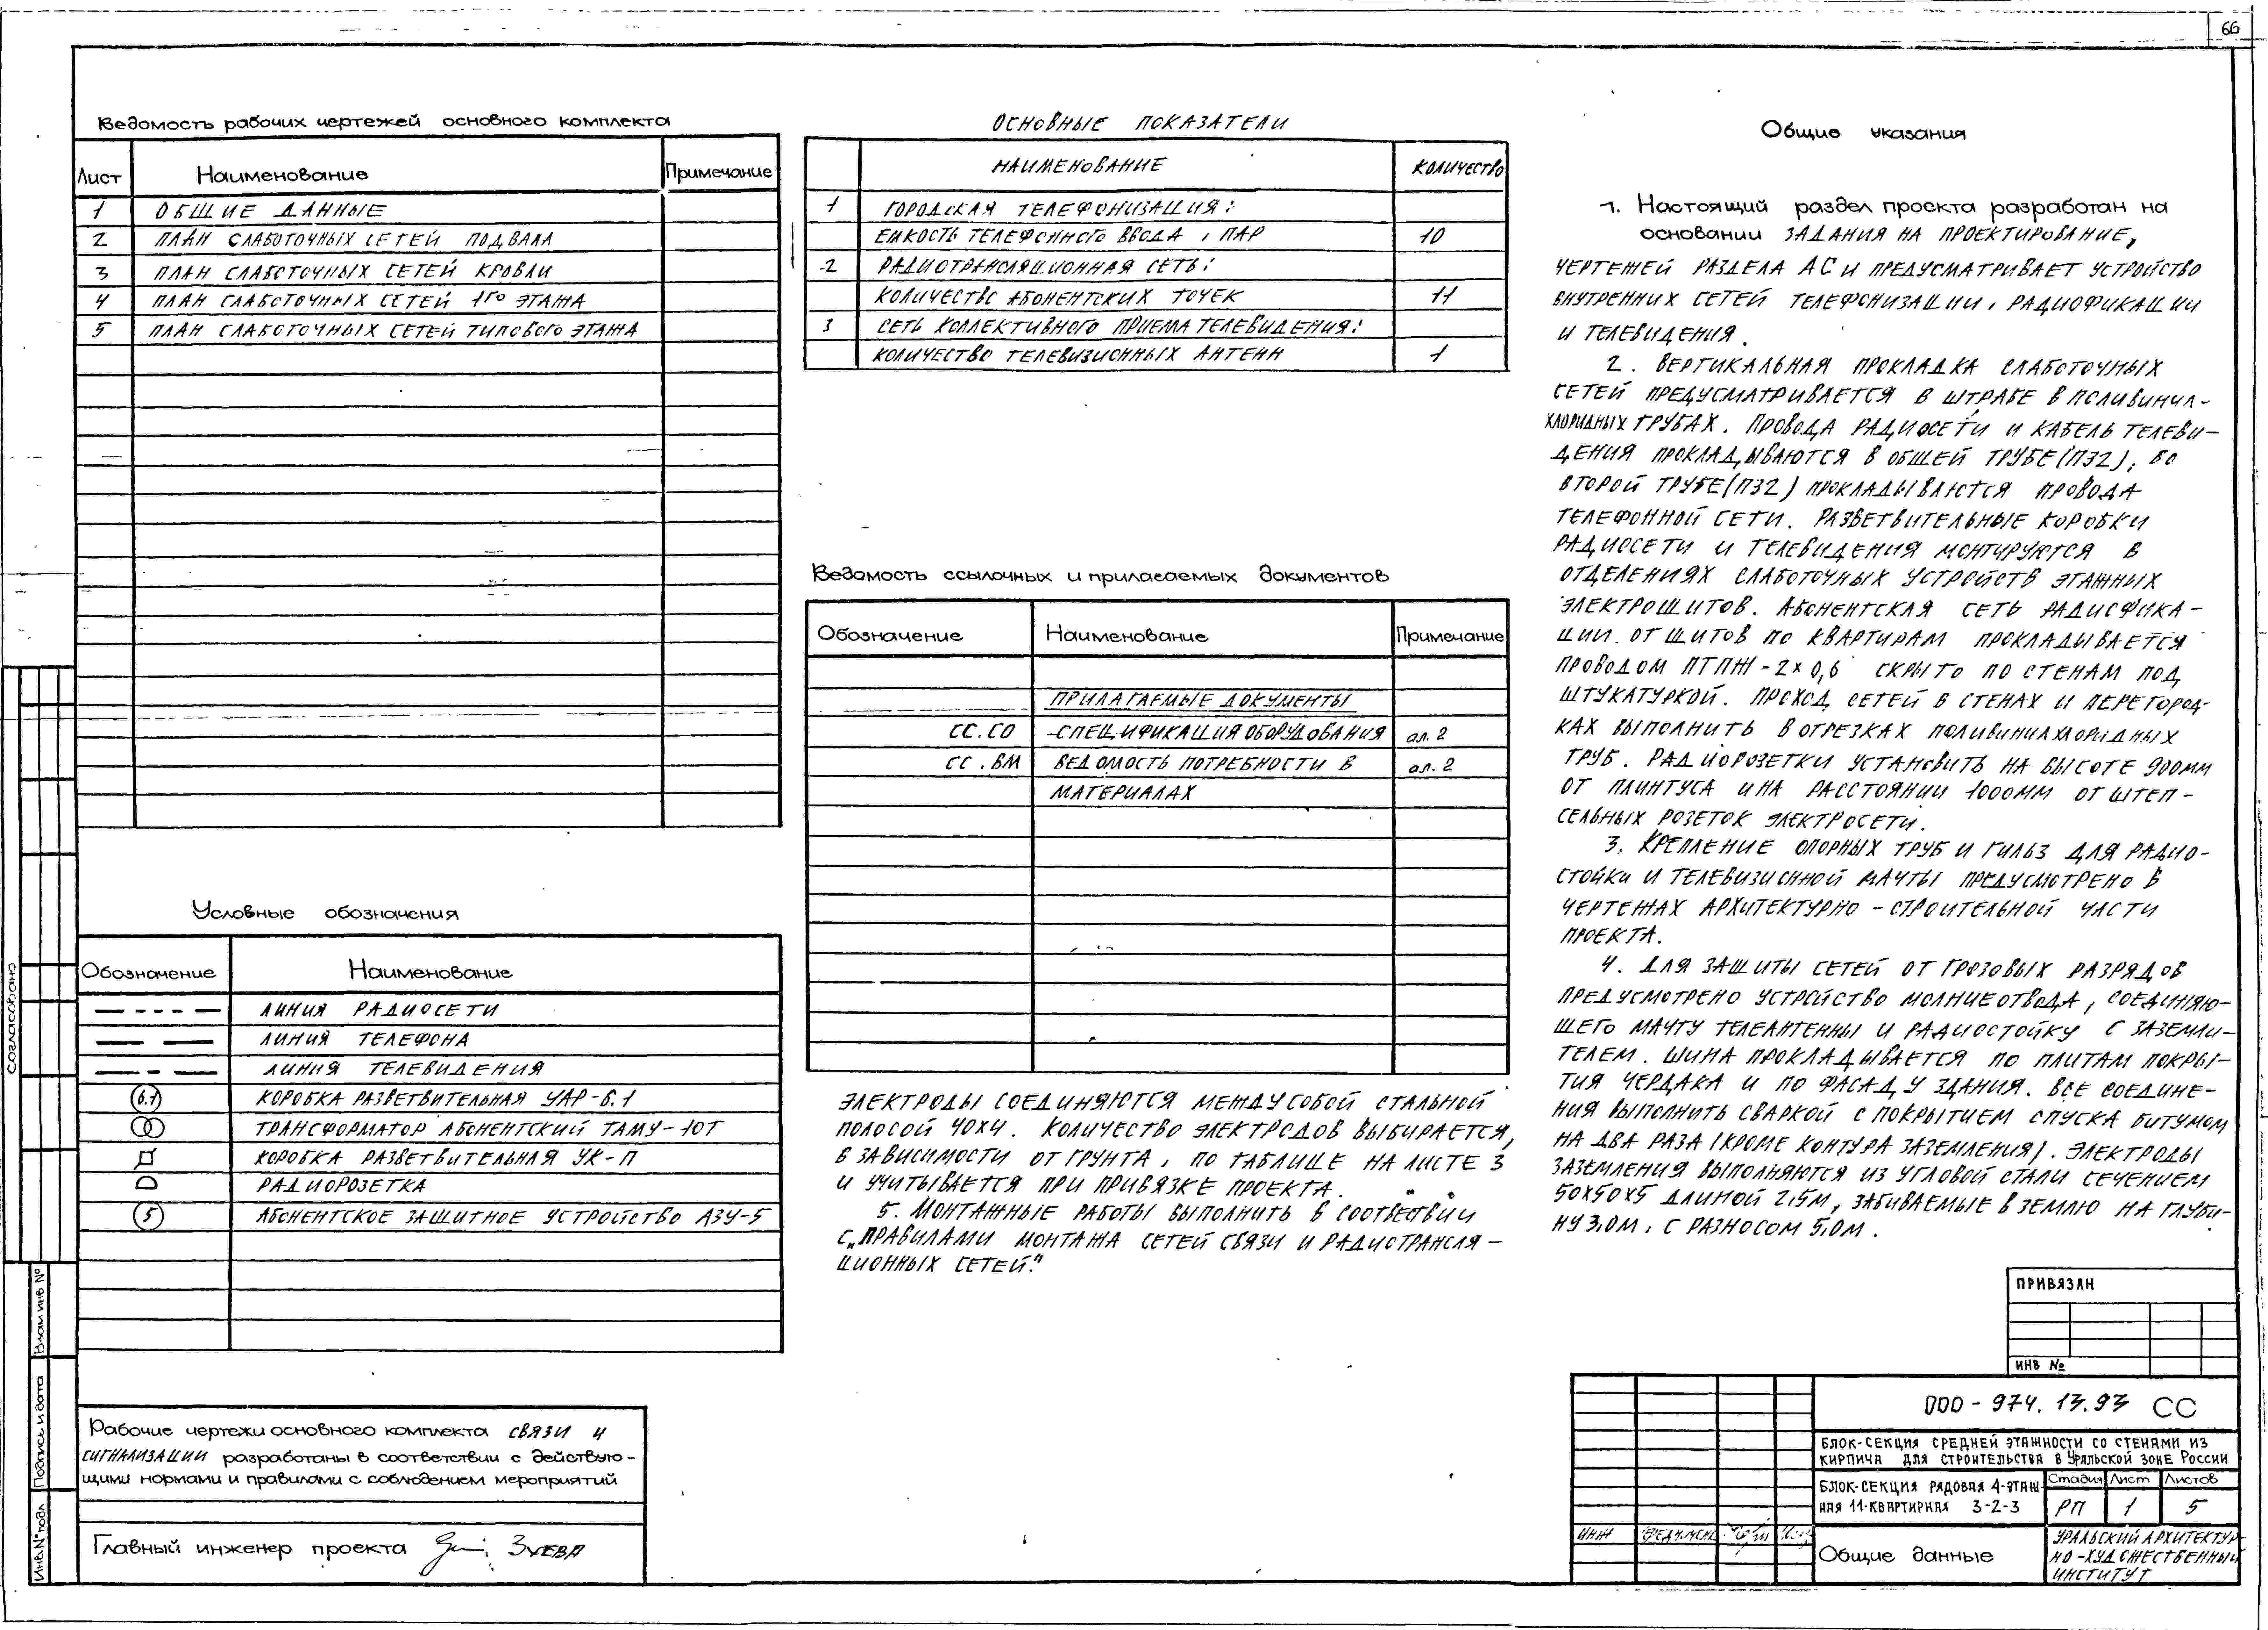 66
Ведомость рабочих чертежей основного комплекта
Лист Наименование Примечание
1 ОБЩИЕ ДАННЫЕ
2 ПЛАН СЛАБОТОЧНЫХ СЕТЕЙ ПОДВАЛА
3 ПЛАН СЛАБОТОЧНЫХ СЕТЕЙ КРОВЛИ
4 ПЛАН СЛАБОТОЧНЫХ СЕТЕЙ 1ГО ЭТАЖА
5 ПЛАН СЛАБОТОЧНЫХ СЕТЕЙ ТИПОВОГО ЭТАЖА
Условные обозначения
Обозначение Наименование
ЛИНИЯ РАДИОСЕТИ
ЛИНИЯ ТЕЛЕФОНА
ЛИНИЯ ТЕЛЕВИДЕНИЯ
6.1 КОРОБКА РАЗВЕТВИТЕЛЬНАЯ УАР-6.1
ТРАНСФОРМАТОР АБОНЕНТСКИЙ ТАМУ-10Т
КОРОБКА РАЗВЕТВИТЕЛЬНАЯ УК-П
РАДИОРОЗЕТКА
5 АБОНЕНТСКОЕ ЗАЩИТНОЕ УСТРОЙСТВО АЗУ-5
Рабочие чертежи основного комплекта СВЯЗИ И
СИГНАЛИЗАЦИИ разработаны в соответствии с действую-
щими нормами и правилами с соблюдением мероприятий
Главный инженер проекта ЗУЕВА
согласовано
Взам инв №
Подпись и дата
Инв.№ подл
ОСНОВНЫЕ ПОКАЗАТЕЛИ
НАИМЕНОВАНИЕ КОЛИЧЕСТВО
1 ГОРОДСКАЯ ТЕЛЕФОНИЗАЦИЯ:
ЕМКОСТЬ ТЕЛЕФОННОГО ВВОДА, ПАР 10
2 РАДИОТРАНСЛЯЦИОННАЯ СЕТЬ:
КОЛИЧЕСТВО АБОНЕНТСКИХ ТОЧЕК 11
3 СЕТЬ КОЛЛЕКТИВНОГО ПРИЕМА ТЕЛЕВИДЕНИЯ:
КОЛИЧЕСТВО ТЕЛЕВИЗИОННЫХ АНТЕНН 1
Ведомость ссылочных и прилагаемых документов
Обозначение Наименование Примечание
ПРИЛАГАЕМЫЕ ДОКУМЕНТЫ
СС.СО СПЕЦИФИКАЦИЯ ОБОРУДОВАНИЯ ал.2
СС.ВМ ВЕДОМОСТЬ ПОТРЕБНОСТИ В ал.2
МАТЕРИАЛАХ
Общие указания
1. Настоящий раздел проекта разработан на
основании ЗАДАНИЯ НА ПРОЕКТИРОВАНИЕ,
ЧЕРТЕЖЕЙ РАЗДЕЛА АС И ПРЕДУСМАТРИВАЕТ УСТРОЙСТВО
ВНУТРЕННИХ СЕТЕЙ ТЕЛЕФОНИЗАЦИИ, РАДИОФИКАЦИИ
И ТЕЛЕВИДЕНИЯ.
2. ВЕРТИКАЛЬНАЯ ПРОКЛАДКА СЛАБОТОЧНЫХ
СЕТЕЙ ПРЕДУСМАТРИВАЕТСЯ В ШТРАБЕ В ПОЛИВИНИЛ-
ХЛОРИДНЫХ ТРУБАХ. ПРОВОДА РАДИОСЕТИ И КАБЕЛЬ ТЕЛЕВИ-
ДЕНИЯ ПРОКЛАДЫВАЮТСЯ В ОБЩЕЙ ТРУБЕ(П32), ВО
ВТОРОЙ ТРУБЕ(П32) ПРОКЛАДЫВАЮТСЯ ПРОВОДА
ТЕЛЕФОННОЙ СЕТИ. РАЗВЕТВИТЕЛЬНЫЕ КОРОБКИ
РАДИОСЕТИ И ТЕЛЕВИДЕНИЯ МОНТИРУЮТСЯ В
ОТДЕЛЕНИЯХ СЛАБОТОЧНЫХ УСТРОЙСТВ ЭТАЖНЫХ
ЭЛЕКТРОЩИТОВ. АБОНЕНТСКАЯ СЕТЬ РАДИОФИКА-
ЦИИ ОТ ЩИТОВ ПО КВАРТИРАМ ПРОКЛАДЫВАЕТСЯ
ПРОВОДОМ ПТПЖ-2×0,6 СКРЫТО ПО СТЕНАМ ПОД
ШТУКАТУРКОЙ. ПРОХОД СЕТЕЙ В СТЕНАХ И ПЕРЕГОРОД-
КАХ ВЫПОЛНИТЬ В ОТРЕЗКАХ ПОЛИВИНИЛХЛОРИДНЫХ
ТРУБ. РАДИОРОЗЕТКИ УСТАНОВИТЬ НА ВЫСОТЕ 900ММ
ОТ ПЛИНТУСА И НА РАССТОЯНИИ 1000ММ ОТ ШТЕП-
СЕЛЬНЫХ РОЗЕТОК ЭЛЕКТРОСЕТИ.
3. КРЕПЛЕНИЕ ОПОРНЫХ ТРУБ И ГИЛЬЗ ДЛЯ РАДИО-
СТОЙКИ И ТЕЛЕВИЗИОННОЙ МАЧТЫ ПРЕДУСМОТРЕНО В
ЧЕРТЕЖАХ АРХИТЕКТУРНО-СТРОИТЕЛЬНОЙ ЧАСТИ
ПРОЕКТА.
4. ДЛЯ ЗАЩИТЫ СЕТЕЙ ОТ ГРОЗОВЫХ РАЗРЯДОВ
ПРЕДУСМОТРЕНО УСТРОЙСТВО МОЛНИЕОТВОДА, СОЕДИНЯЮ-
ЩЕГО МАЧТУ ТЕЛЕАНТЕННЫ И РАДИОСТОЙКУ С ЗАЗЕМЛИ-
ТЕЛЕМ. ШИНА ПРОКЛАДЫВАЕТСЯ ПО ПЛИТАМ ПОКРЫ-
ТИЯ ЧЕРДАКА И ПО ФАСАДУ ЗДАНИЯ. ВСЕ СОЕДИНЕ-
НИЯ ВЫПОЛНИТЬ СВАРКОЙ С ПОКРЫТИЕМ СПУСКА БИТУМОМ
НА ДВА РАЗА (КРОМЕ КОНТУРА ЗАЗЕМЛЕНИЯ). ЭЛЕКТРОДЫ
ЗАЗЕМЛЕНИЯ ВЫПОЛНЯЮТСЯ ИЗ УГЛОВОЙ СТАЛИ СЕЧЕНИЕМ
50Х50Х5 ДЛИНОЙ 2,5М, ЗАБИВАЕМЫЕ В ЗЕМЛЮ НА ГЛУБИ-
НУ 3,0М, С РАЗНОСОМ 5,0М.
ЭЛЕКТРОДЫ СОЕДИНЯЮТСЯ МЕЖДУ СОБОЙ СТАЛЬНОЙ
ПОЛОСОЙ 40Х4. КОЛИЧЕСТВО ЭЛЕКТРОДОВ ВЫБИРАЕТСЯ,
В ЗАВИСИМОСТИ ОТ ГРУНТА, ПО ТАБЛИЦЕ НА ЛИСТЕ 3
И УЧИТЫВАЕТСЯ ПРИ ПРИВЯЗКЕ ПРОЕКТА.
5. МОНТАЖНЫЕ РАБОТЫ ВЫПОЛНИТЬ В СООТВЕТВИИ
С „ПРАВИЛАМИ МОНТАЖА СЕТЕЙ СВЯЗИ И РАДИОТРАНСЛЯ-
ЦИОННЫХ СЕТЕЙ."
ПРИВЯЗАН
ИНВ №
000-974.13.93 СС
БЛОК-СЕКЦИЯ СРЕДНЕЙ ЭТАЖНОСТИ СО СТЕНАМИ ИЗ
КИРПИЧА ДЛЯ СТРОИТЕЛЬСТВА В УРАЛЬСКОЙ ЗОНЕ РОССИИ
БЛОК-СЕКЦИЯ РЯДОВАЯ 4-ЭТАЖ-
НАЯ 11-КВАРТИРНАЯ 3-2-3
Стадия Лист Листов
РП 1 5
ИНЖ
Общие данные
УРАЛЬСКИЙ АРХИТЕКТУР
НО-ХУДОЖЕСТВЕННЫЙ
ИНСТИТУТ